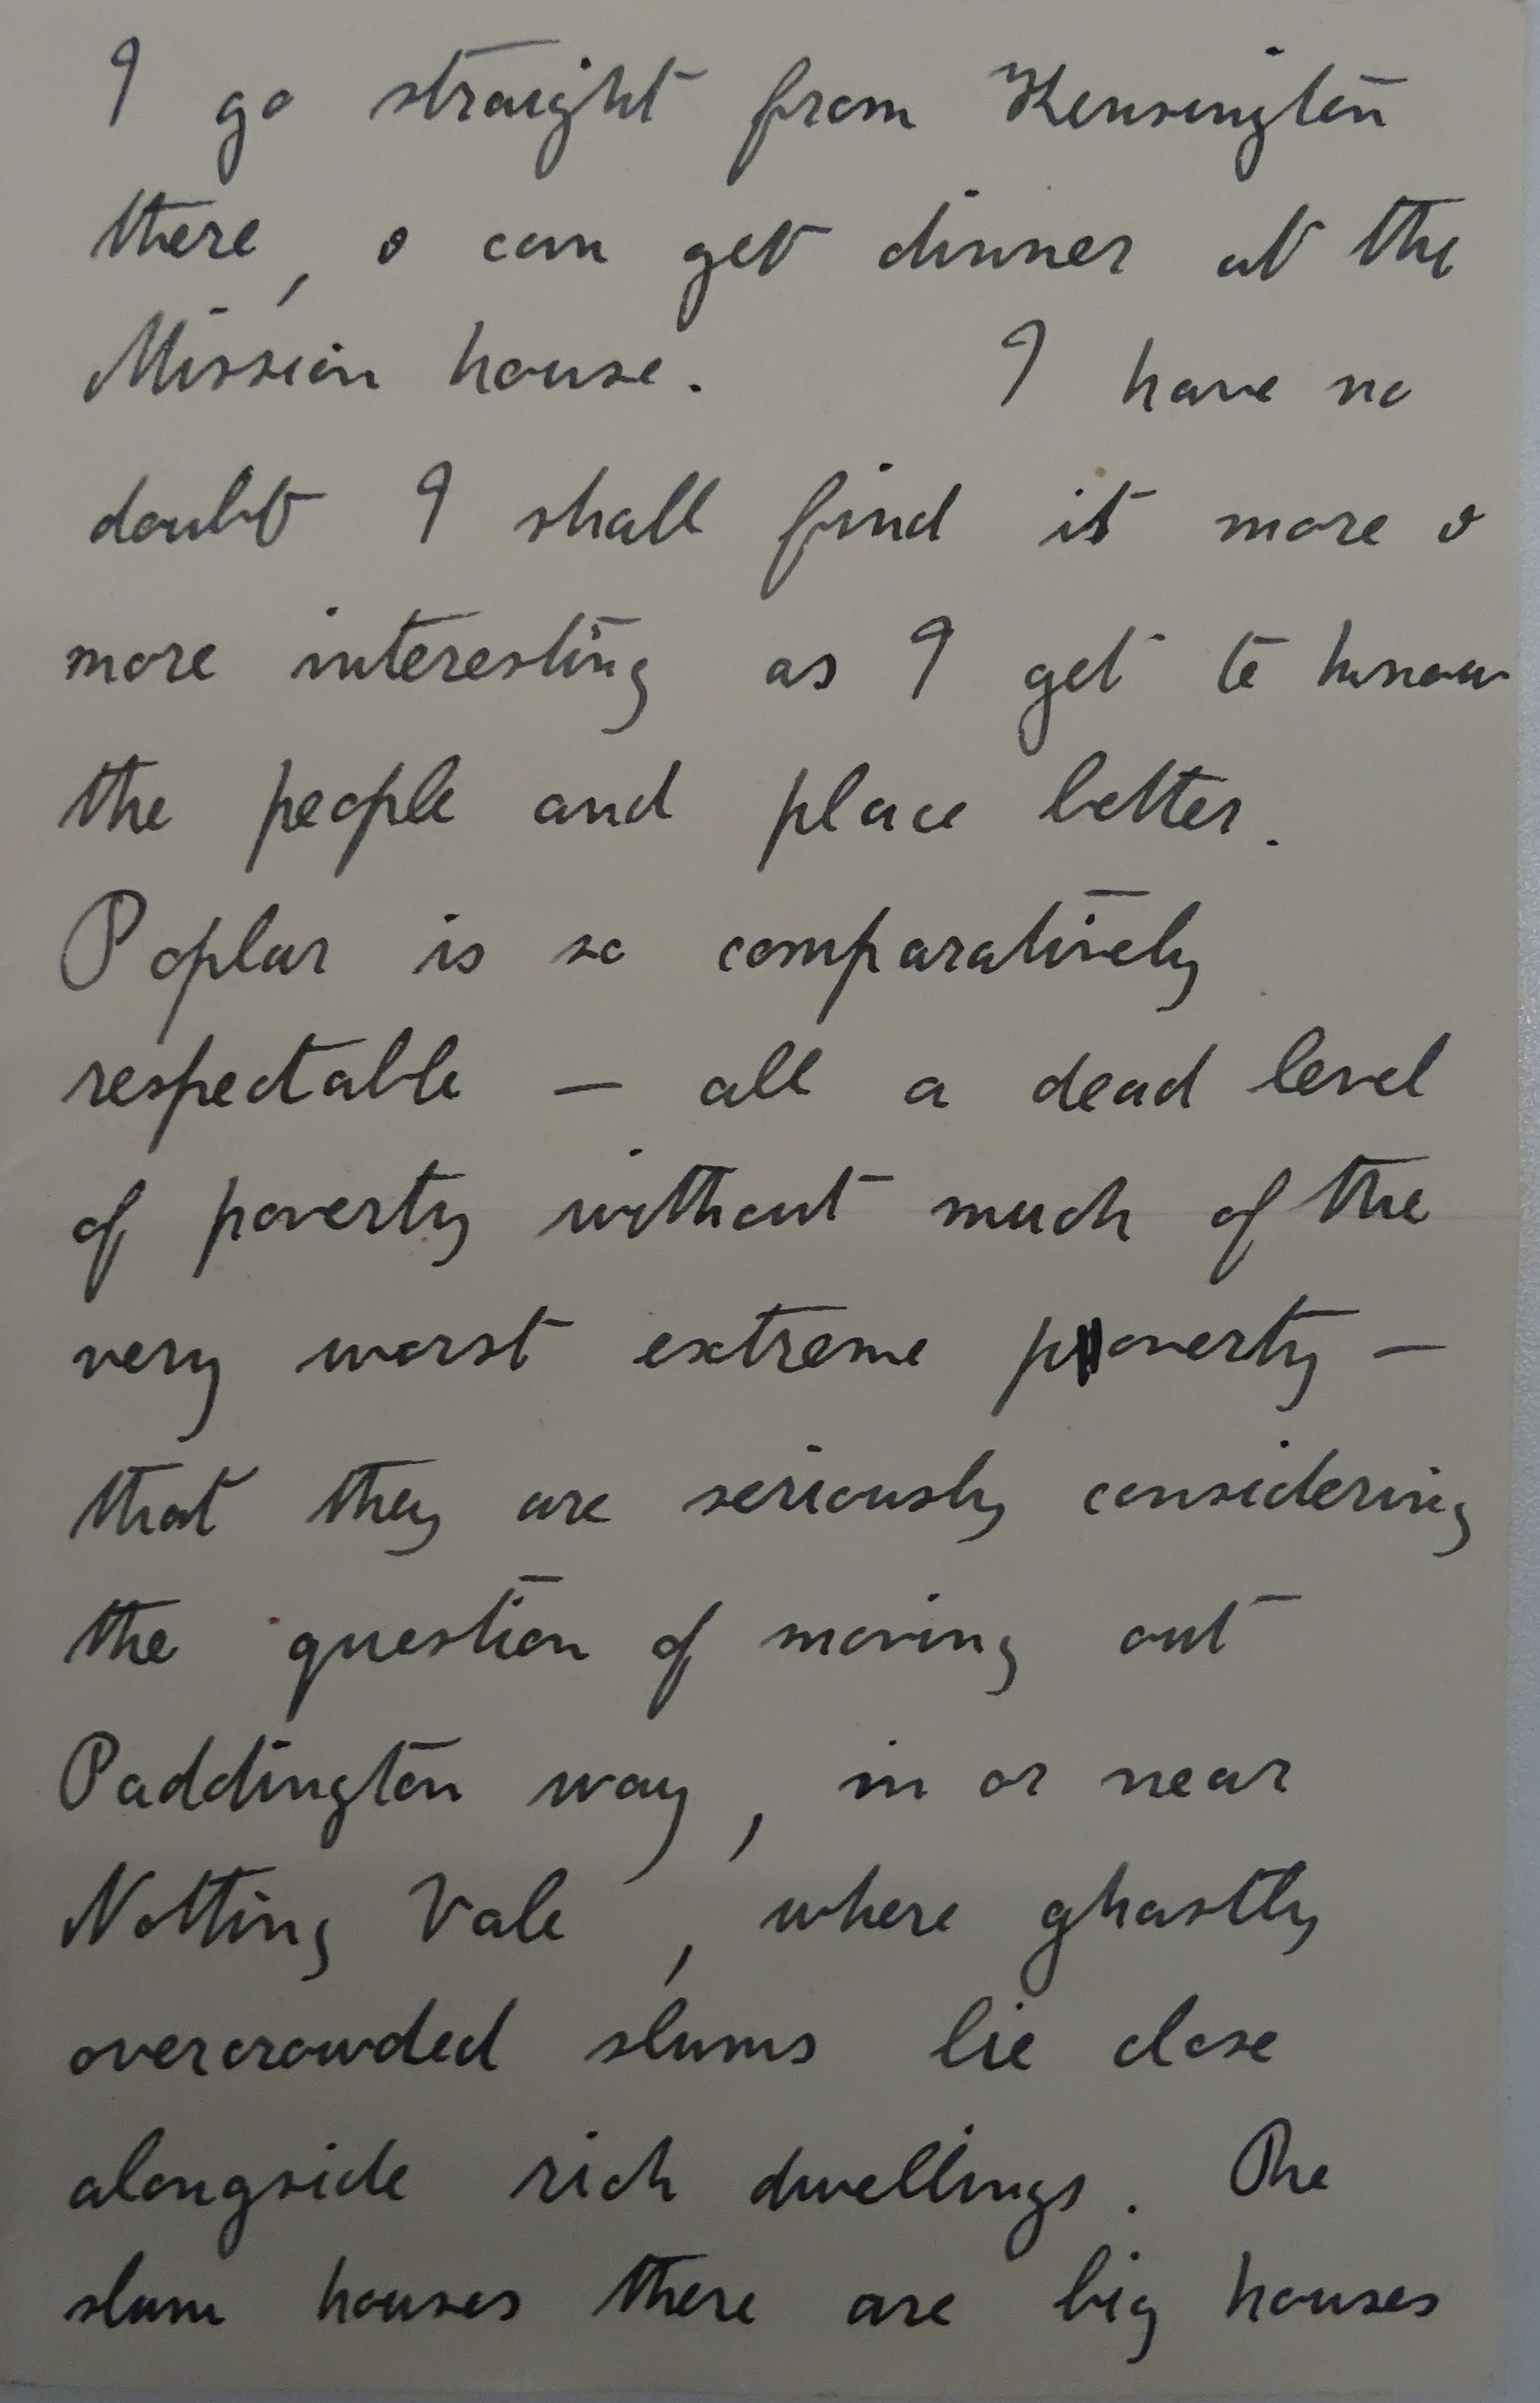 I go straight from Kensington
there, & can get dinner at the
Mission house. I have no
doubt I shall find it more &
more interesting as I get to know
the people and place better.
Poplar is so comparatively
respectable — all a dead level
of poverty without much of the
very worst extreme poverty —
that they are seriously considering
the question of moving out
Paddington way, in or near
Notting Vale, where ghastly
overcrowded slums lie close
alongside rich dwellings. The
slum houses there are big houses